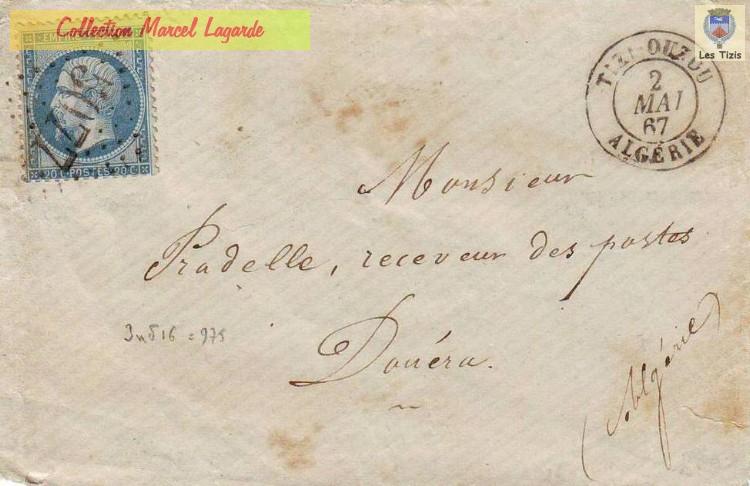 Collection Marcel Lagarde
Les Tizis
EMPIRE
20 C POSTES 20 C
TIZI-OUZOU
2
MAI
67
ALGÉRIE
Monsieur
Pradelle, receveur des postes
Douéra.
(Algérie)